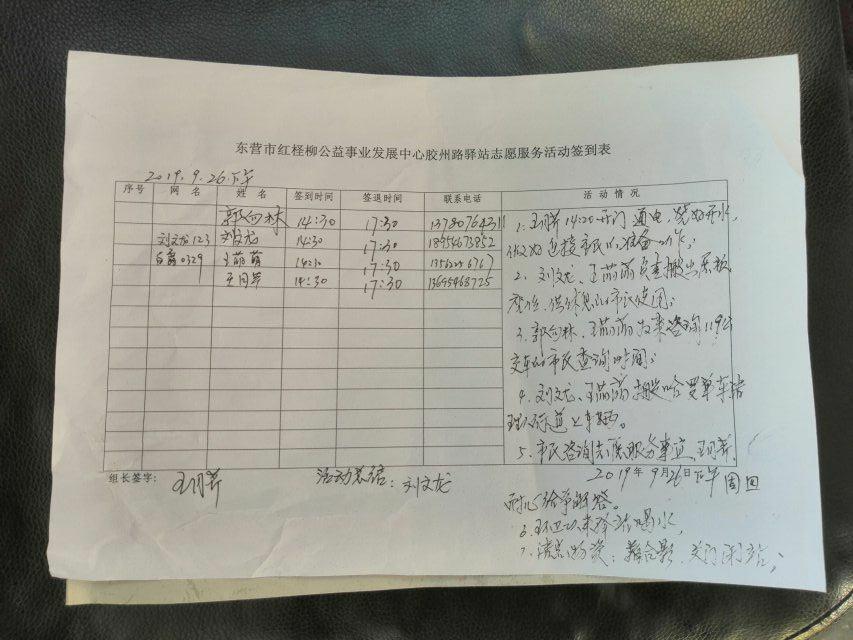 东营市红柽柳公益事业发展中心胶州路驿站志愿服务活动签到表
2019.9.26下午
序号 网名 姓名 签到时间 签退时间 联系电话 活动情况
郭向林 14:30 17:30
刘文龙123 刘文龙 14:30 17:30 18954673852
0329 王萌萌 14:30 17:30
14:30 17:30 13695468725
1、 14:25开门通电,烧好开水,
做好迎接市民的准备工作;
2、刘文龙、王萌萌负责搬出桌椅
座位,供休息的市民使用;
3、郭向林、王萌萌为来咨询119公
交车的市民查询时间;
4、刘文龙、王萌萌 哈罗单车 
理人行道上车辆。
5、市民咨询志愿服务事宜,
组长签字: 活动总结:刘文龙
2019年9月26日下午 周四
耐心给予解答。
6、环卫工来驿站喝水,
7、清点物资; 合影,关门闭站;